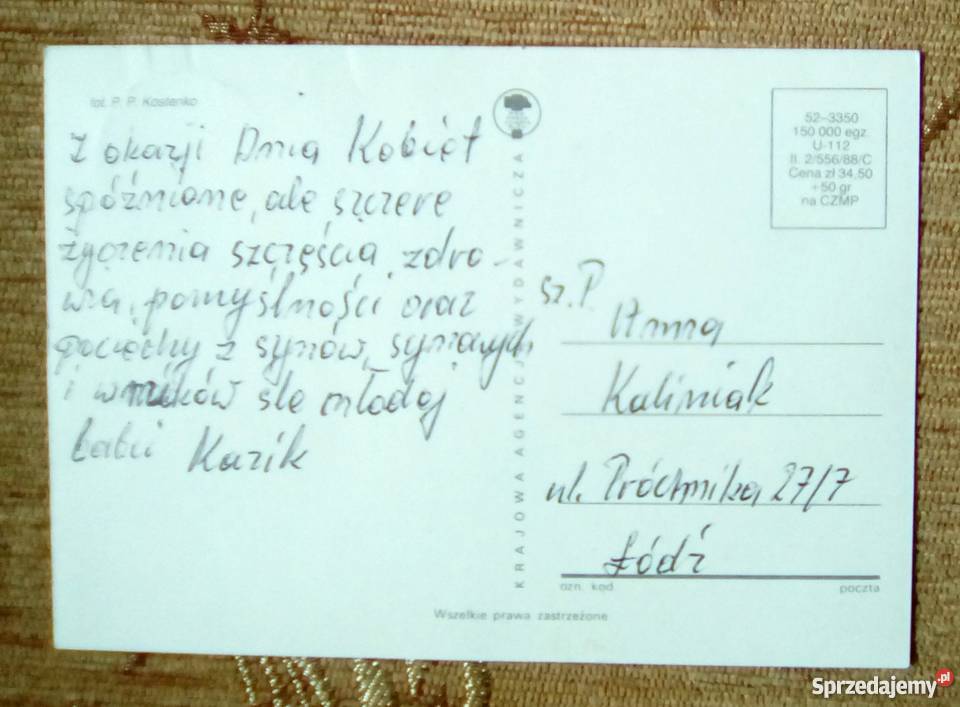 fot. P. P. Kostenko
Z okazji Dnia Kobiet
spóźnione, ale szczere
życzenia szczęścia, zdro-
wia, pomyślności oraz
pociechy z synów, synowych
i wnuków śle młodej
babci Kazik
KRAJOWA AGENCJA WYDAWNICZA
52-3350
150 000 egz.
U-112
II. 2/556/88/C
Cena zł 34,50
+50 gr
na CZMP
Sz. P.
Anna
Kaliniak
ul. Próchnika 27/7
Łódź
ozn. kod
poczta
Wszelkie prawa zastrzeżone
Sprzedajemy.pl